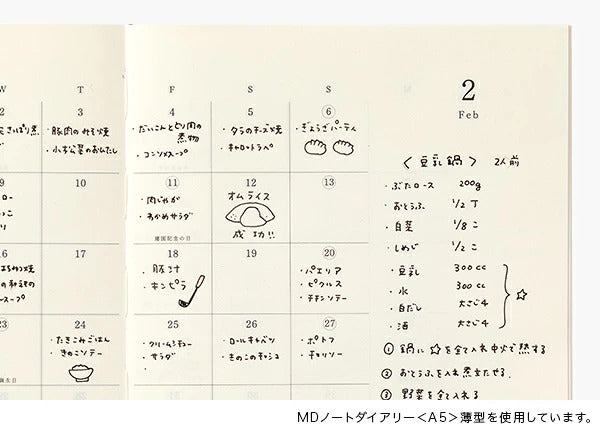 W T F S S
2
Feb
3
・豚肉のみそ焼
・小松菜のおひたし
4
・だいこんととり肉の
煮物
・コンソメスープ
5
・タラのチーズ焼
・キャロットラペ
6
・ぎょうざパーティ
10
11
・肉じゃが
・わかめサラダ
建国記念の日
12
オムライス
成功!!
13
17
18
・豚汁
・キンピラ
19
20
・パエリア
・ピクルス
・チキンソテー
24
・たきこみごはん
・きのこソテー
25
・クリームシチュー
・サラダ
26
・ロールキャベツ
・きのこのキッシュ
27
・ポトフ
・チョリソー
<豆乳鍋> 2人前
・ぶたロース 200g
・おとうふ 1/2丁
・白菜 1/8こ
・しめじ 1/2こ
・豆乳 300cc
・水 300cc
・白だし 大さじ4
・酒 大さじ4
☆
① 鍋に☆を全て入れ中火で熱する
② おとうふを入れ煮立たせる.
③ 野菜を全て入れる
MDノートダイアリー<A5>薄型を使用しています。